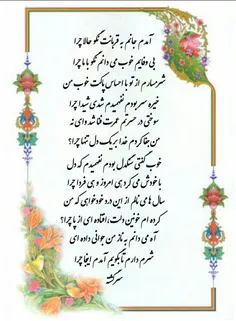 آمدم جانم به قربانت نگو حالا چرا
بی وفایم خوب می دانم نگو با ما چرا
شرمسارم از تو با احساس پاکت خوب من
خیره سر بودم نفهمیدم شدی شیدا چرا
سوختی در حسرتم عمرت فنا شد وای نه
من جفا کردم خدا بر یک دل تنها چرا؟
خوب گفتی سنگدل بودم نفهمیدم که دل
با خودش می کرد هی امروز و هی فردا چرا
سال های نام از این درد خودخواهی که من
کرده ام خونین دلت، افتاده ای از پا چرا؟
آه می دانم به ناز من جوانی داده ای
شرم دارم تا بگویم آمدم اینجا چرا
سرگشته